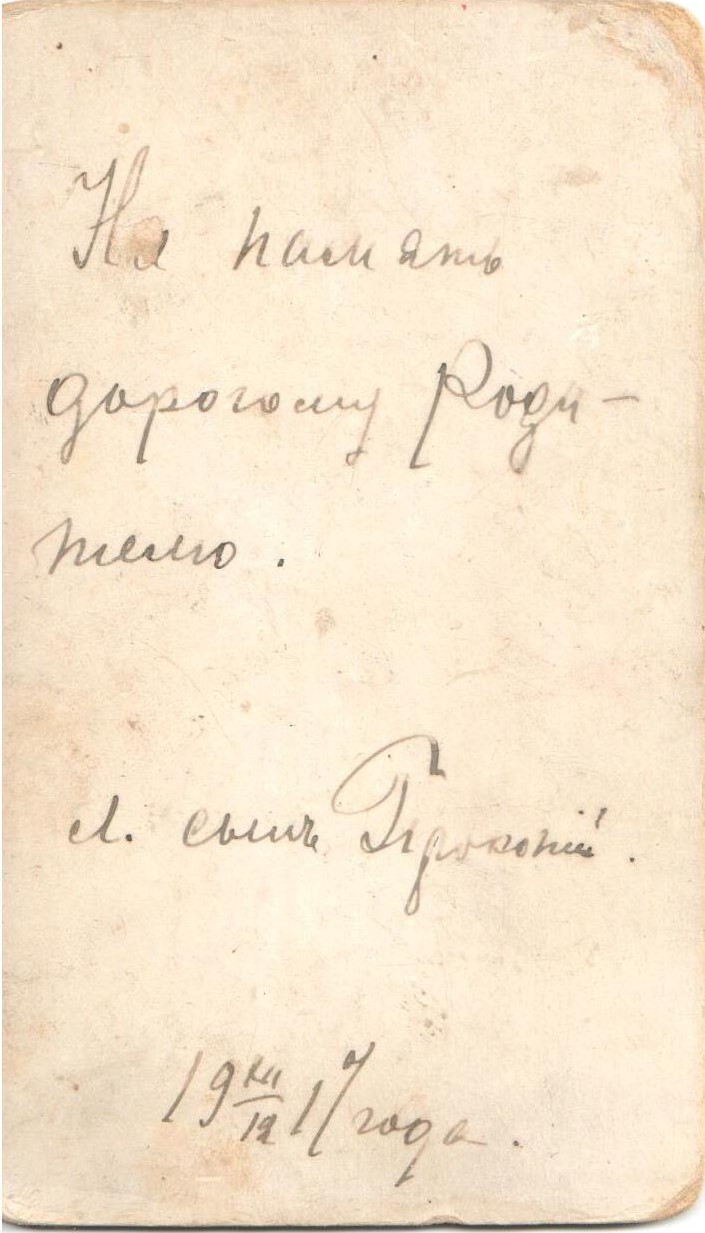 На память
дорогому Роди-
телю.
л. сынъ Прокопiй.
19 XII/12 17 года.